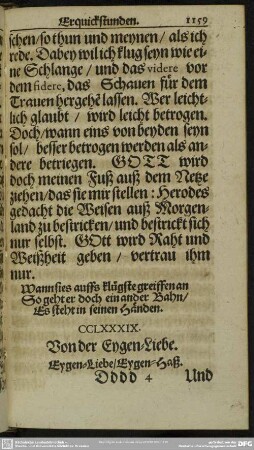 Erquickstunden. 1159
schen/so thun und meynen/als ich
rede. Dabey wil ich klug seyn wie ei-
ne Schlange/und das videre vor
dem fidere, das Schauen für dem
Trauen hergehẽ lassen. Wer leicht-
lich glaubt / wird leicht betrogen.
Doch/wann eins von beyden seyn
sol/ besser betrogen werden als an-
dere betriegen. GOTT wird
doch meinen Fuß auß dem Netze
ziehen/das sie mir stellen: Herodes
gedacht die Weisen auß Morgen-
land zu bestricken/und bestrickt sich
nur selbst. GOtt wird Raht und
Weißheit geben/ vertrau ihm
nur.
Wann sies auffs klügste greiffen an
So geht er doch ein ander Bahn/
Es steht in seinen Händen.
CCLXXXIX.
Von der Eygen-Liebe.
Eygen-Liebe/Eygen-Haß.
Dddd 4 Und